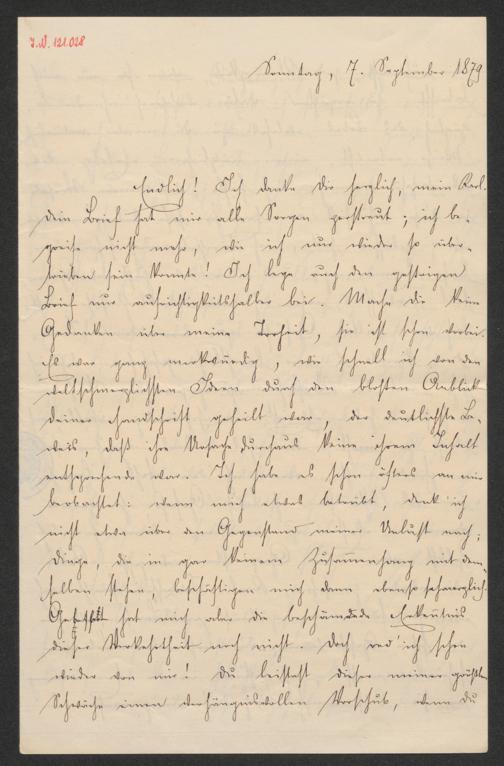 I.N. 121.028
Sonntag, 7. September 1879
Endlich! Ich danke dir herzlich, mein Karl.
Dein Brief hat mir alle Sorgen zerstreut; ich be-
greife nicht mehr, wie ich nur wieder so über-
trieben sein konnte! Ich lege auch den gestrigen
Brief nur aufrichtigkeitshalber bei. Mache dir keine
Gedanken über meine Torheit, sie ist schon vorbei.
Es war ganz merkwürdig, wie schnell ich von den
weltschmerzlichsten Ideen durch den bloßen Anblick
deiner Handschrift geheilt war, der deutlichste Be-
weis, daß ihre Ursache durchaus keine ihrem Inhalt
entsprechende war. Ich habe es schon öfters an mir
beobachtet: wenn mich etwas betrübt, denk' ich
nicht etwa über den Gegenstand meiner Unlust nach;
Dinge, die in gar keinem Zusammenhang mit dem-
selben stehen, beschäftigen mich dann ebenso schmerzlich.
hat mich aber die beschämende Erkenntnis
dieser Verkehrtheit noch nicht. Doch red' ich schon
wieder von mir! Du leistest dieser meiner größten
Schwäche einen verhängnisvollen Vorschub, wenn du